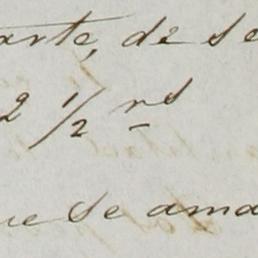 arte, de se
2 ½ rs
ue se ama